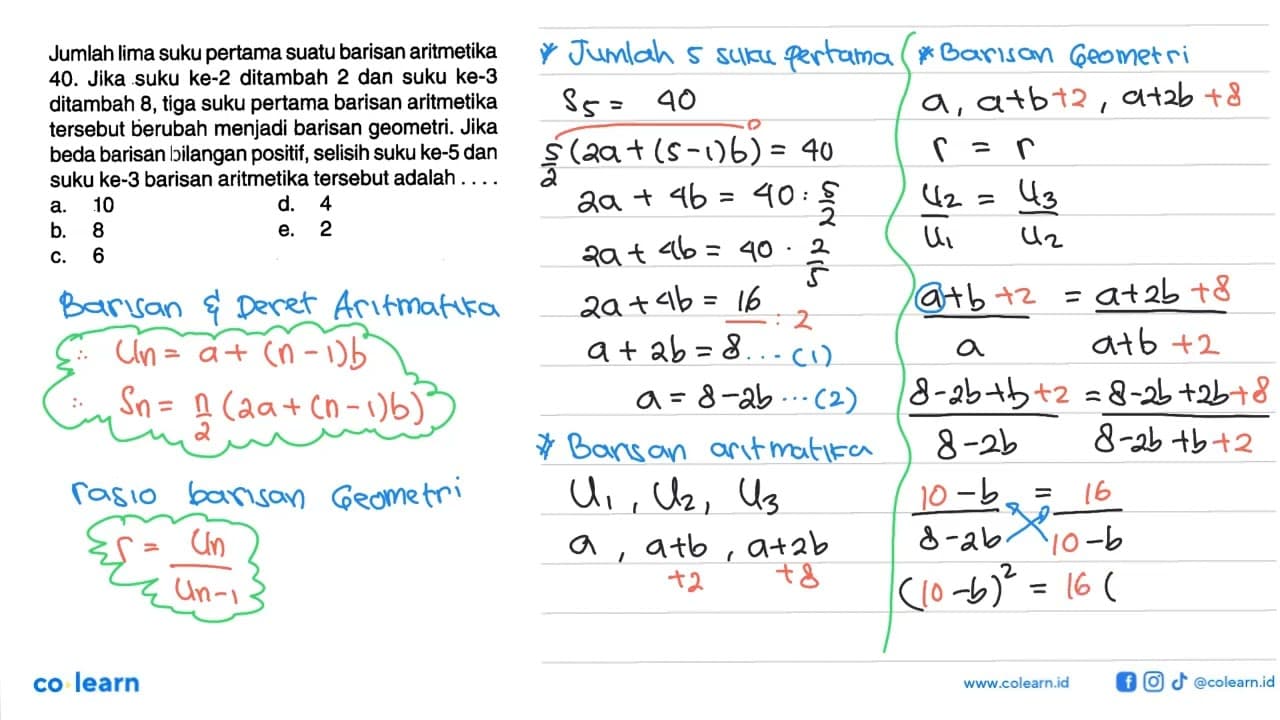 Jumlah lima suku pertama suatu barisan aritmetika
40. Jika suku ke-2 ditambah 2 dan suku ke-3
ditambah 8, tiga suku pertama barisan aritmetika
tersebut berubah menjadi barisan geometri. Jika
beda barisan bilangan positif, selisih suku ke-5 dan
suku ke-3 barisan aritmetika tersebut adalah . . . .
a. 10 d. 4
b. 8 e. 2
c. 6
Barisan & Deret Aritmatika
∴ Un = a + (n-1)b
∴ Sn = n/2 (2a + (n-1)b)
rasio barisan Geometri
r = Un/Un-1
* Jumlah 5 suku pertama
S5 = 40
5/2 (2a + (5-1)b) = 40
2a + 4b = 40 : 5/2
2a + 4b = 40 · 2/5
2a + 4b = 16 : 2
a + 2b = 8 ... (1)
a = 8-2b ... (2)
* Barisan aritmatika
U1, U2, U3
a, a+b, a+2b
+2 +8
* Barisan Geometri
a, a+b+2, a+2b+8
r = r
U2/U1 = U3/U2
a+b+2/a = a+2b+8/a+b+2
8-2b+b+2/8-2b = 8-2b+2b+8/8-2b+b+2
10-b/8-2b = 16/10-b
(10-b)² = 16 (
co learn
www.colearn.id
@colearn.id